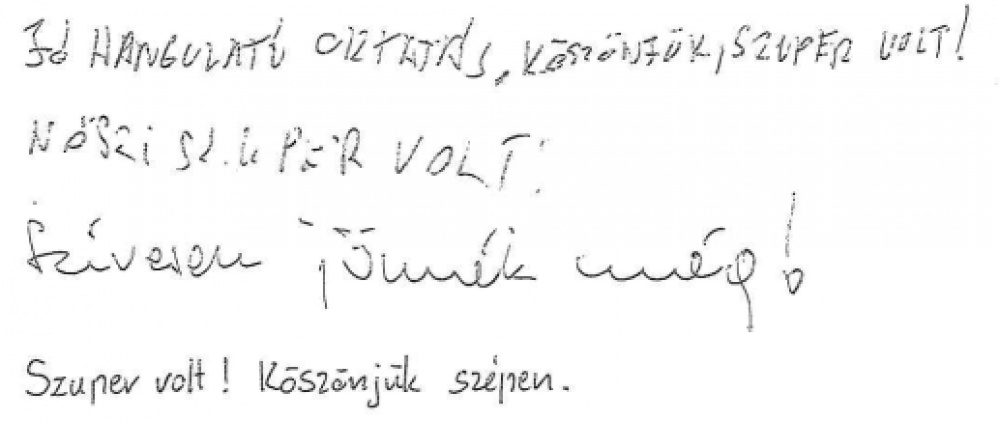 Jó HANGULATÚ OKTATÁS, KÖSZÖNJÜK, SZUPER VOLT!
NŐSZI SZUPER VOLT!
Szívesen jönnék még!
Szuper volt! Köszönjük szépen.